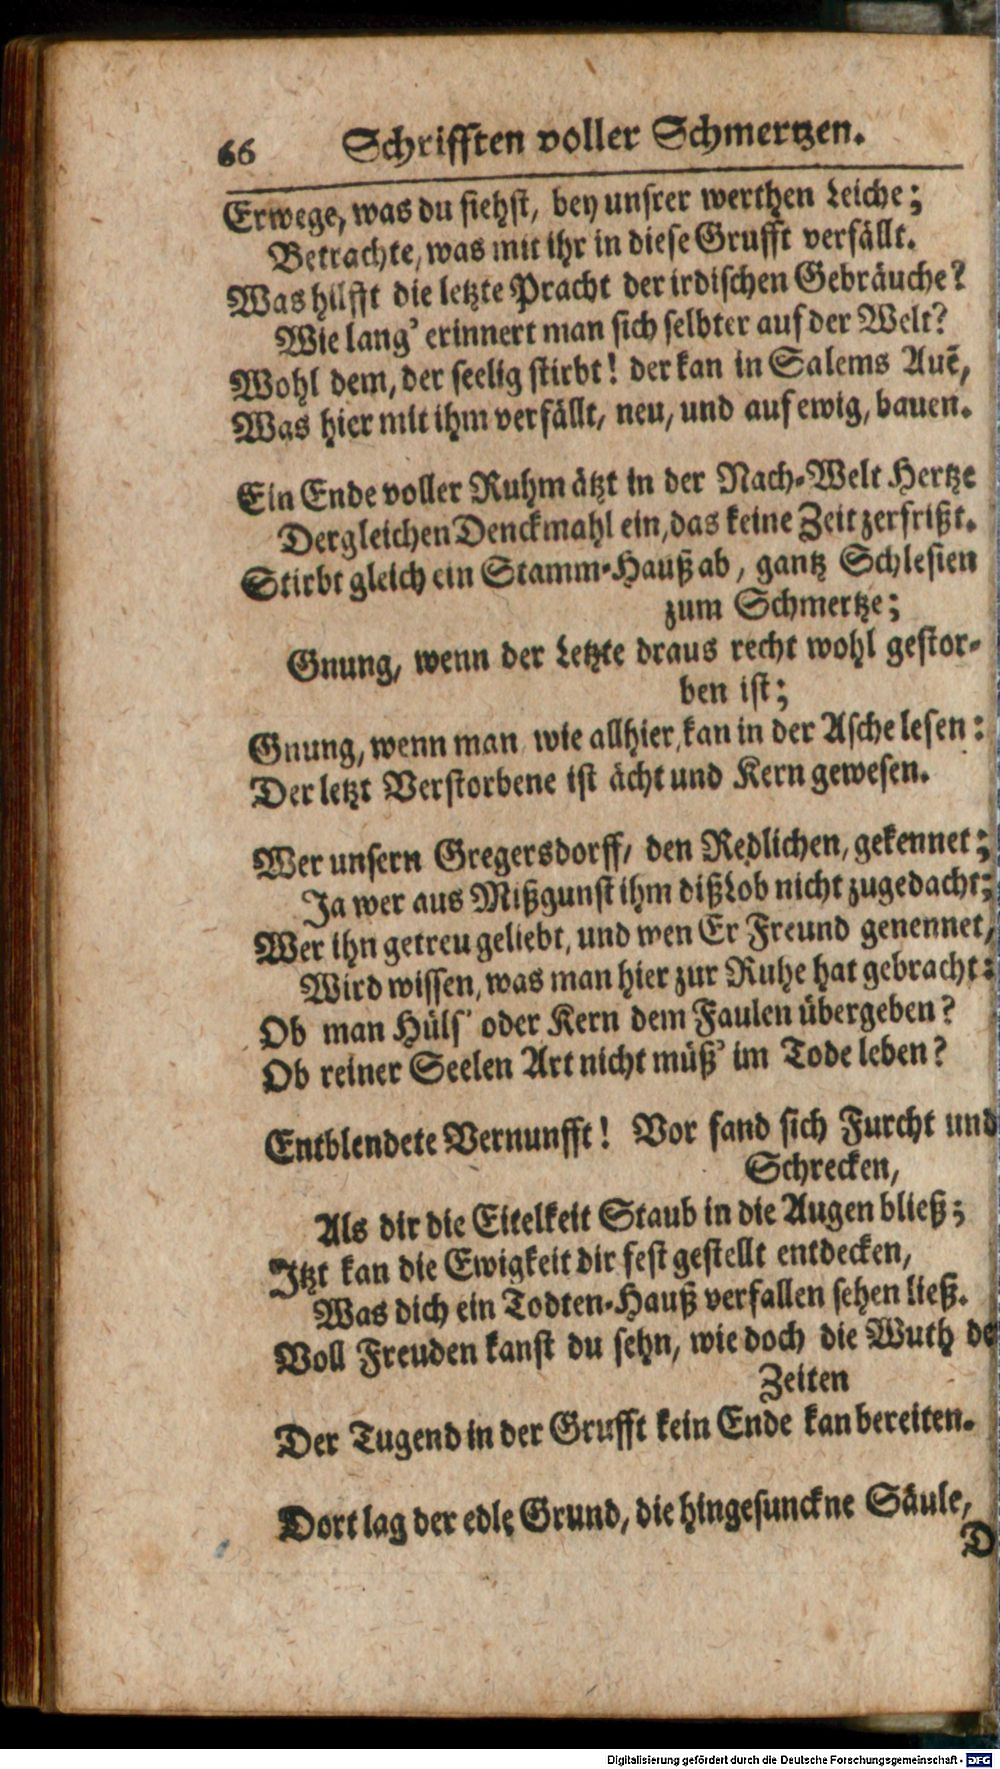 66 Schrifften voller Schmertzen.
Erwege, was du siehst, bey unsrer werthen Leiche;
Betrachte, was mit ihr in diese Grufft verfällt.
Was hilfft die letzte Pracht der irdischen Gebräuche?
Wie lang' erinnert man sich selbter auf der Welt?
Wohl dem, der seelig stirbt! der kan in Salems Auē,
Was hier mit ihm verfällt, neu, und auf ewig, bauen.
Ein Ende voller Ruhm ätzt in der Nach-Welt Hertze
Dergleichen Denckmahl ein, das keine Zeit zerfrißt.
Stirbt gleich ein Stamm-Hauß ab, gantz Schlesien
zum Schmertze;
Gnung, wenn der Letzte draus recht wohl gestor-
ben ist;
Gnung, wenn man wie allhier, kan in der Asche lesen:
Der letzt Verstorbene ist ächt und Kern gewesen.
Wer unsern Gregersdorff, den Redlichen, gekennet;
Ja wer aus Mißgunst ihm diß Lob nicht zugedacht;
Wer ihn getreu geliebt, und wen Er Freund genennet,
Wird wissen, was man hier zur Ruhe hat gebracht:
Ob man Hüls' oder Kern dem Faulen übergeben?
Ob reiner Seelen Art nicht müß' im Tode leben?
Entblendete Vernunfft! Vor fand sich Furcht und
Schrecken,
Als dir die Eitelkeit Staub in die Augen bließ;
Jtzt kan die Ewigkeit dir fest gestellt entdecken,
Was dich ein Todten-Hauß verfallen sehen ließ.
Voll Freuden kanst du sehn, wie doch die Wuth de
Zeiten
Der Tugend in der Grufft kein Ende kan bereiten.
Dort lag der edle Grund, die hingesunckne Säule,
D
Digitalisierung gefördert durch die Deutsche Forschungsgemeinschaft - DFG